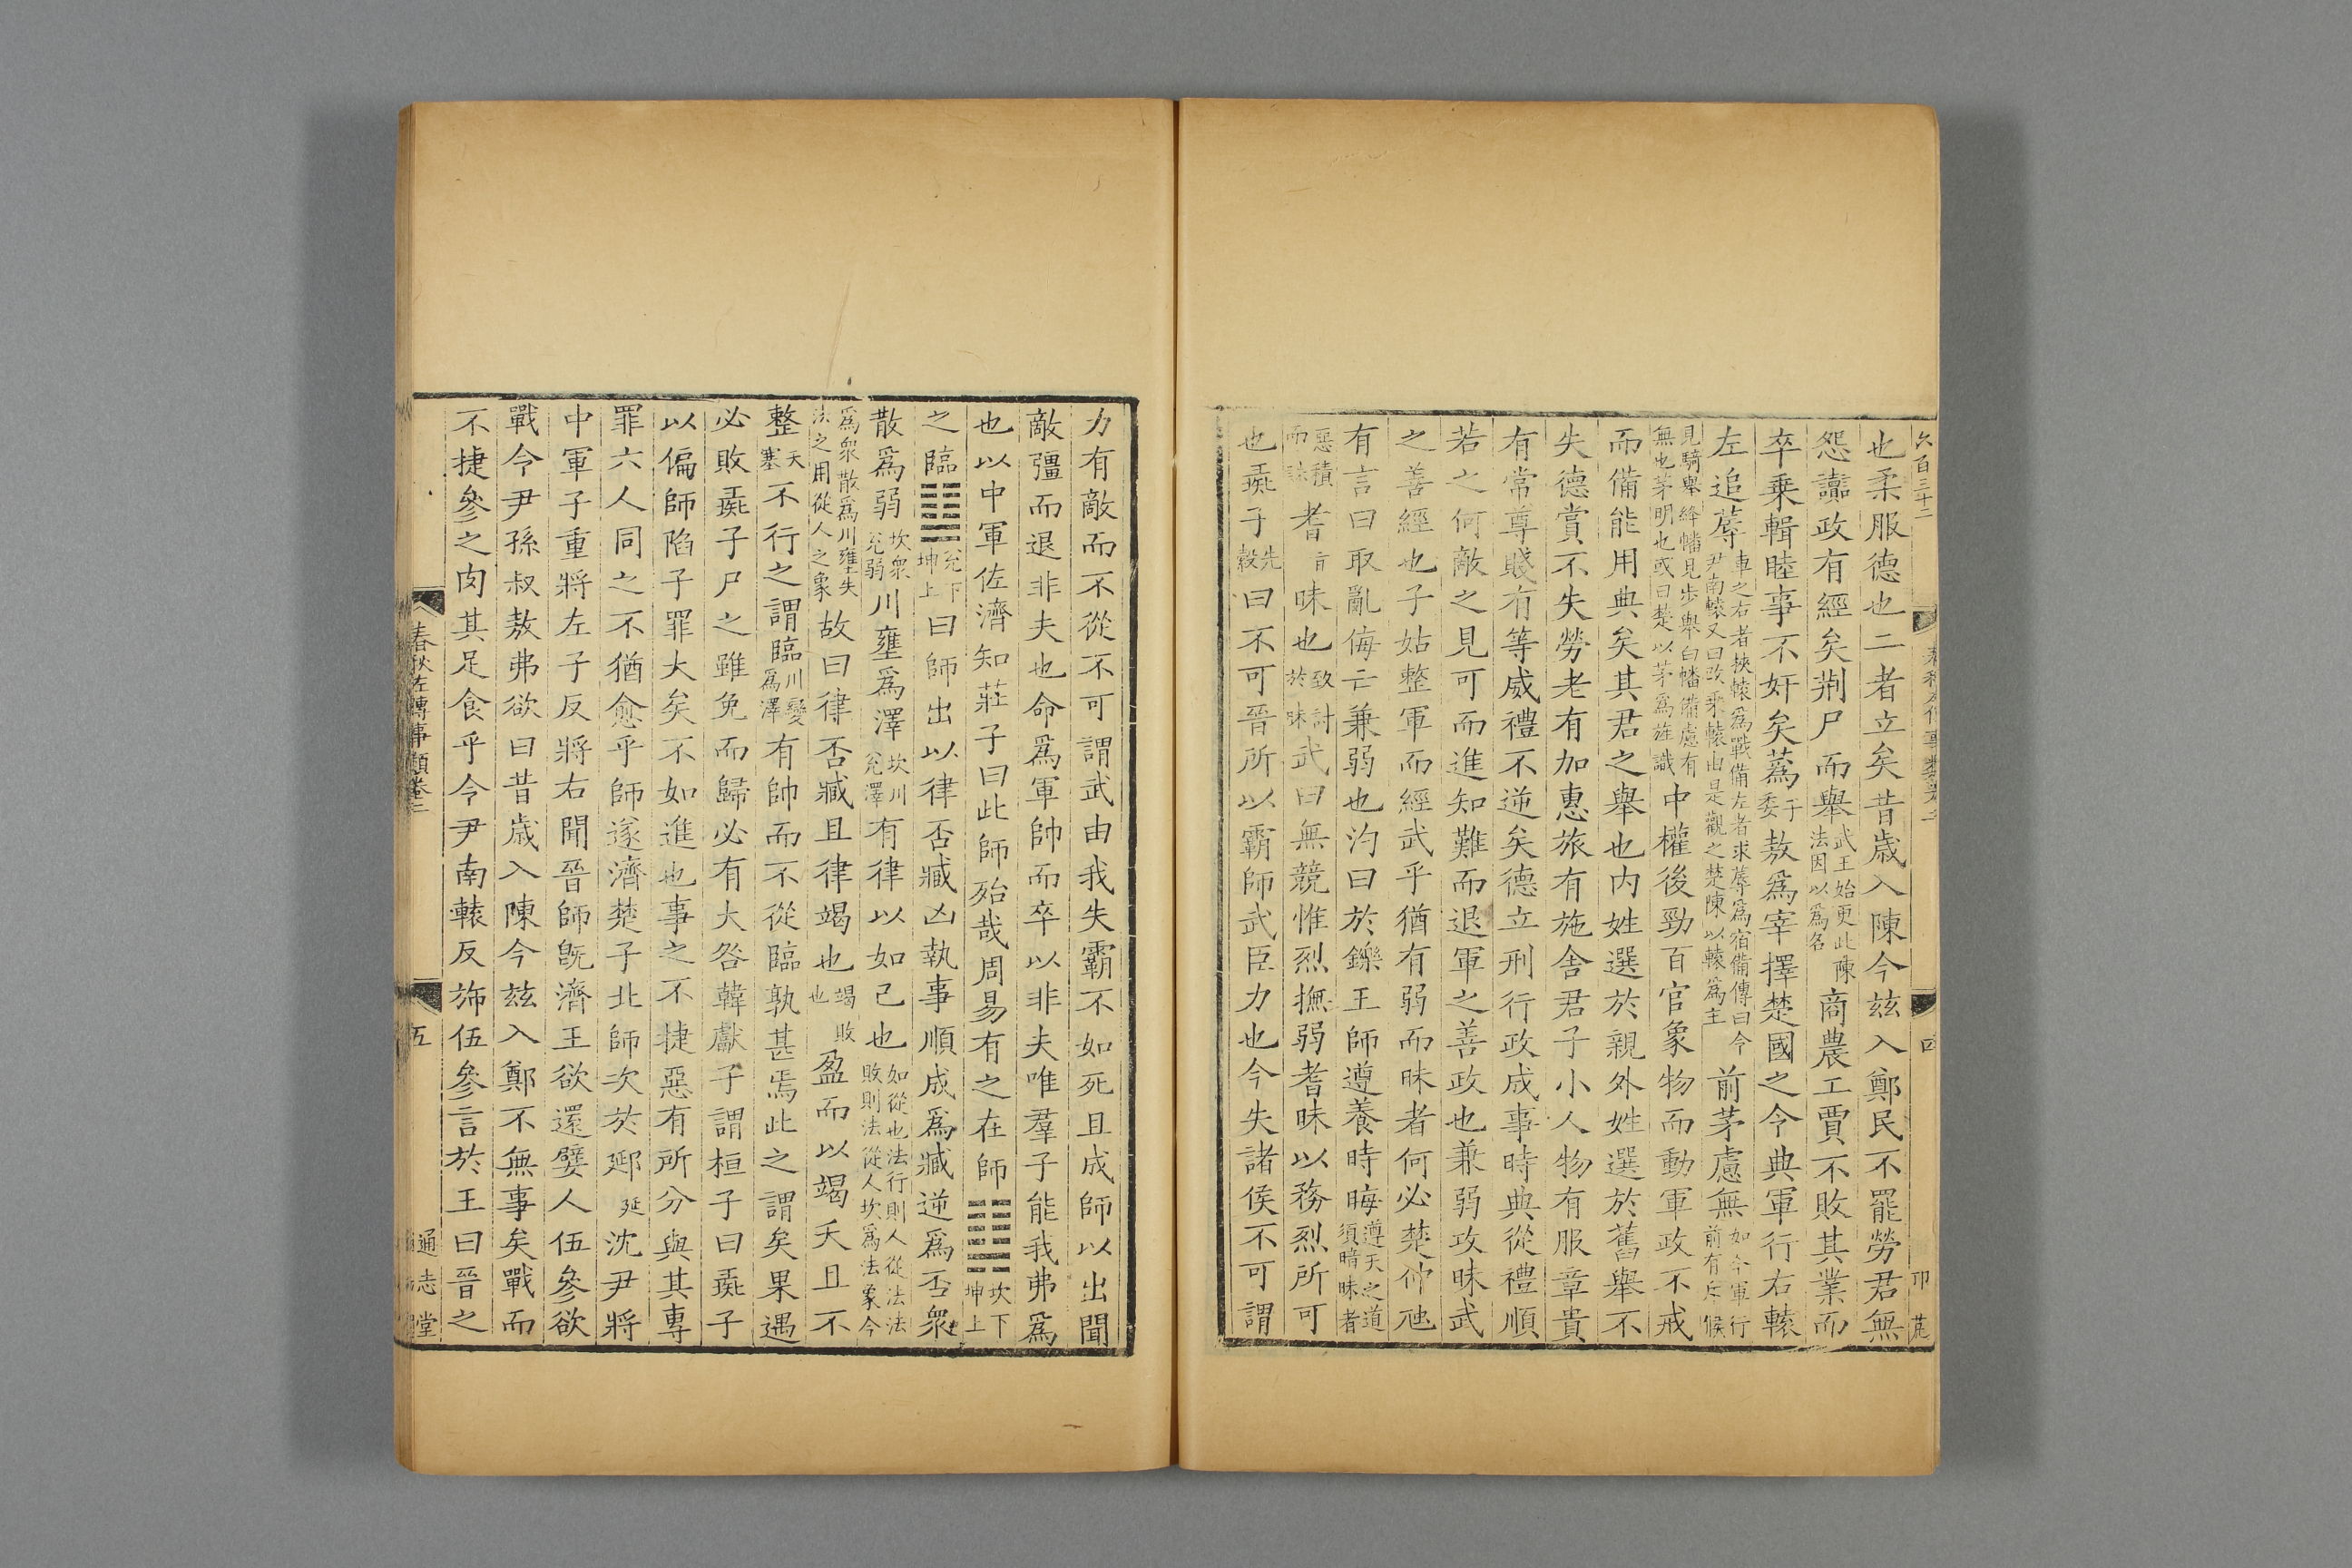 六百三十二
四
也柔服德也二者立矣昔歲入陳今兹入鄭民不罷勞君無
怨讟政有經矣荆尸而舉武王始更此陳法因以爲名商農工賈不敗其業而
卒乗輯睦事不奸矣蒍于委敖爲宰擇楚國之令典軍行右轅
左追蓐車之右者挾轅爲戰備左者求蓐爲宿備傳曰令尹南轅又曰改乗轅由是觀之楚陳以轅爲主前茅慮無如今軍行前有斥候
見騎舉絳幡見步舉白幡備慮有無也茅明也或曰楚以茅爲旌識中權後勁百官象物而動軍政不戒
而備能用典矣其君之舉也内姓選於親外姓選於舊舉不
失德賞不失勞老有加惠旅有施舍君子小人物有服章貴
有常尊賤有等威禮不逆矣德立刑行政成事時典從禮順
若之何敵之見可而進知難而退軍之善政也兼弱攻昧武
之善經也子姑整軍而經武乎猶有弱而昧者何必楚仲虺
有言曰取亂侮亡兼弱也汋曰於鑠王師遵養時晦遵天之道須暗昧者
惡積而昧耆音昧也致討於昧武曰無競惟烈撫弱耆昧以務烈所可
也彘子先縠曰不可晉所以霸師武臣力也今失諸侯不可謂
力有敵而不從不可謂武由我失霸不如死且成師以出聞
敵彊而退非夫也命爲軍帥而卒以非夫唯羣子能我弗爲
也以中軍佐濟知莊子曰此師殆哉周易有之在師䷆坎下坤上
之臨䷒兑下坤上曰師出以律否臧凶執事順成爲臧逆爲否衆
散爲弱坎衆兑弱川壅爲澤坎川兑澤有律以如己也如從也法行則人從法法敗則法從人坎爲法象今
爲衆散爲川壅失法之用從人之象故曰律否臧且律竭也竭敗也盈而以竭夭且不
整夭塞不行之謂臨川變爲澤有帥而不從臨孰甚焉此之謂矣果遇
必敗彘子尸之雖免而歸必有大咎韓獻子謂桓子曰彘子
以偏師陷子罪大矣不如進也事之不捷惡有所分與其專
罪六人同之不猶愈乎師遂濟楚子北師次於郔延沈尹將
中軍子重將左子反將右聞晉師既濟王欲還嬖人伍參欲
戰令尹孫叔敖弗欲曰昔歲入陳今兹入鄭不無事矣戰而
不捷參之肉其足食乎令尹南轅反斾伍參言於王曰晉之
春秋左傳事類卷二
五
通志堂